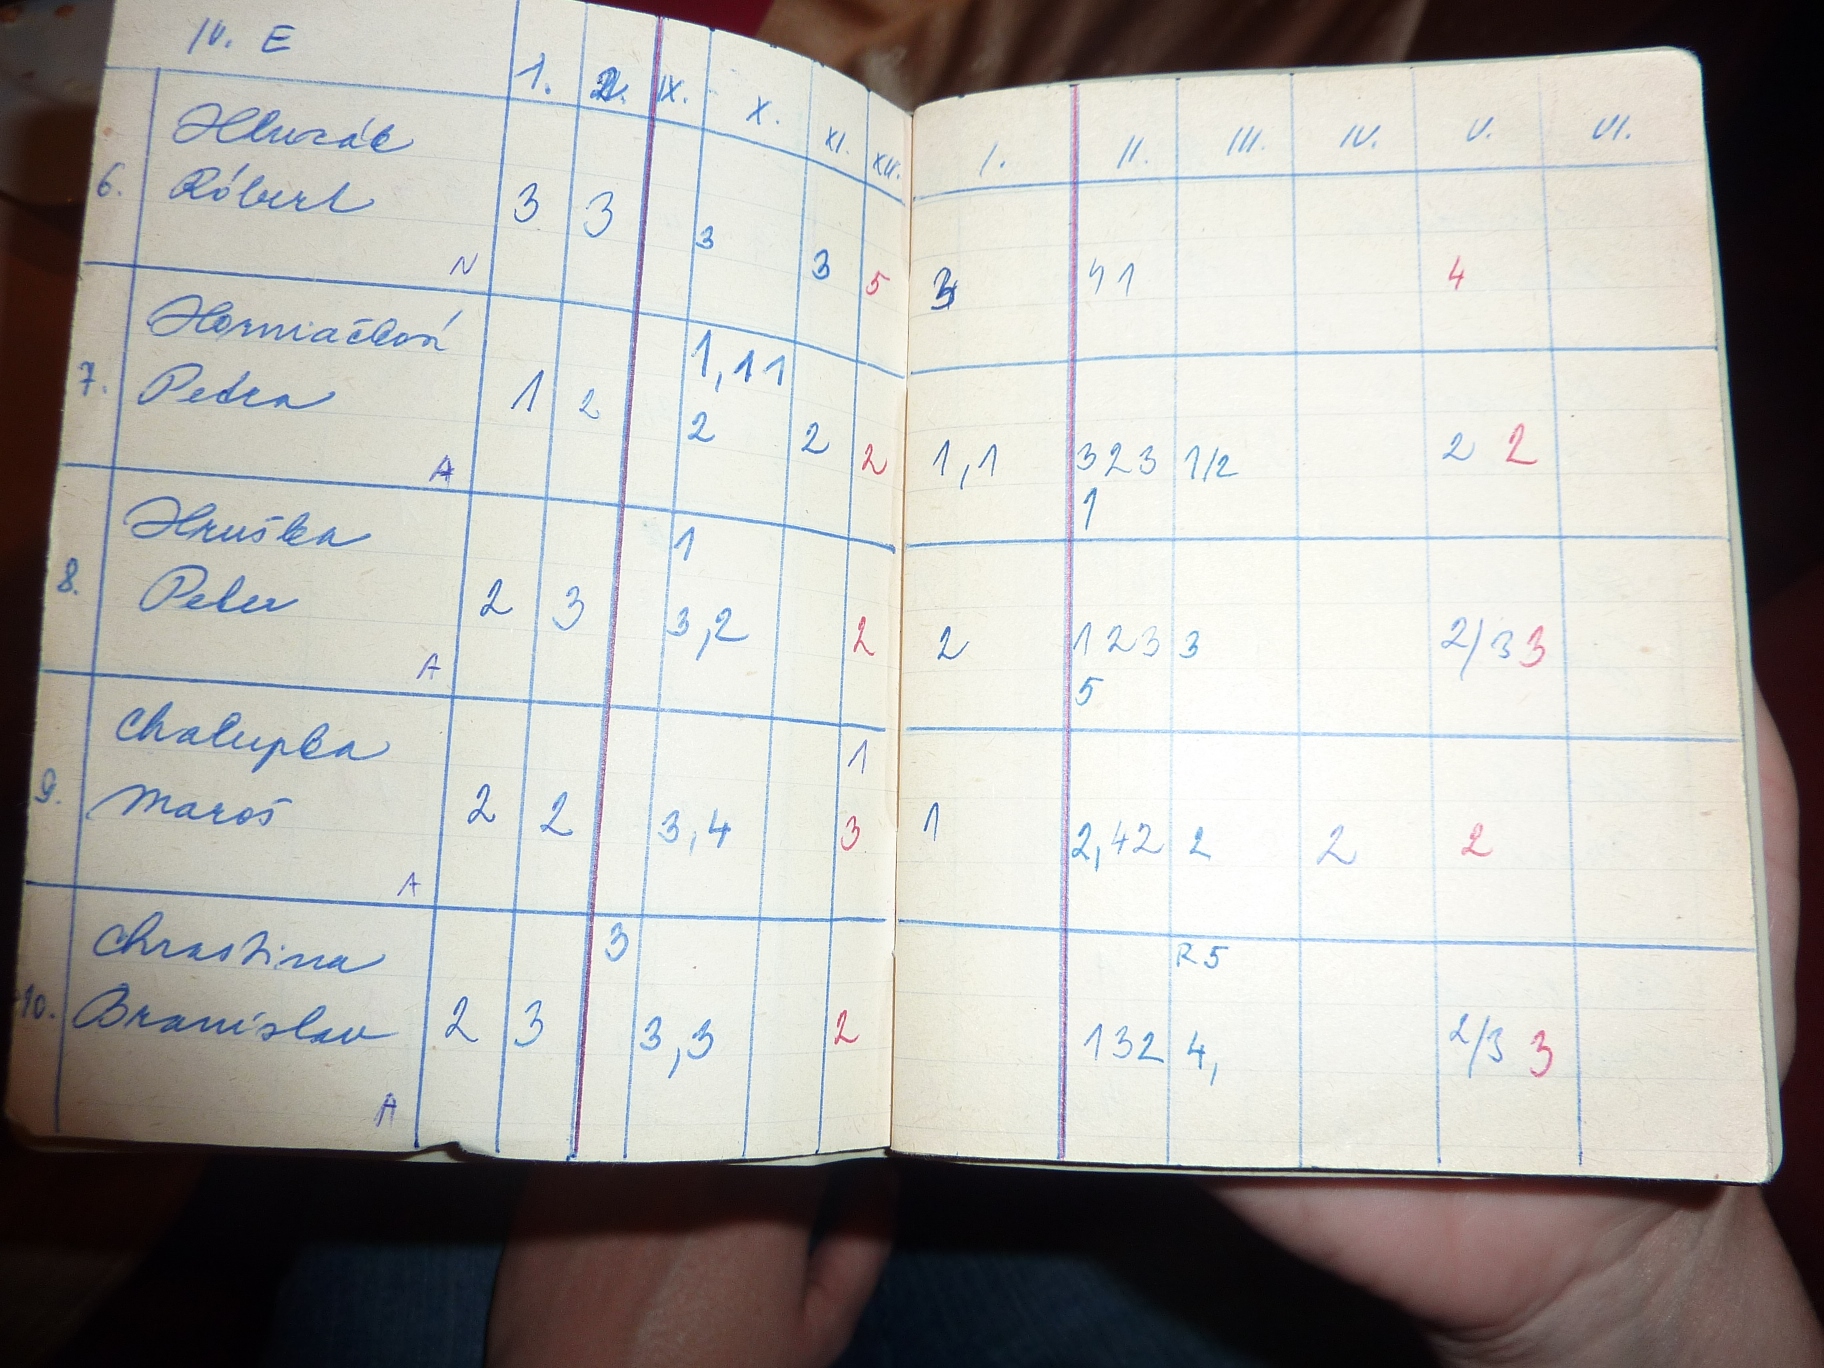 IV. E
1. 2. IX. X. XI. XII. I. II. III. IV. V. VI.
Hluzák
6. Róbert 3 3 3 3 5 3 41 4
N
Horniačková 1,11
7. Petra 1 2 2 2 2 1,1 323 1/2 2 2
A 1
Hruška 1
8. Peter 2 3 3,2 2 2 123 3 2/3 3
A 5
Chalupka 1
9. Maroš 2 2 3,4 3 1 2,42 2 2 2
A
Chrastina 3 R5
10. Branislav 2 3 3,3 2 132 4, 2/3 3
A